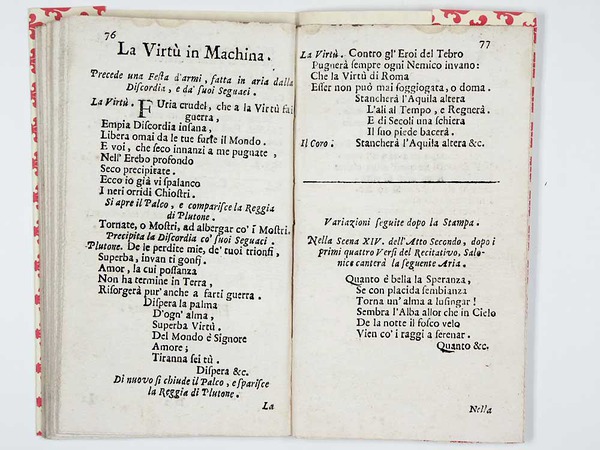 76
La Virtù in Machina.
Precede una Festa d'armi, fatta in aria dalla
Discordia, e da' suoi Seguaci.
La Virtù. FUria crudel, che a la Virtù fai
guerra,
Empia Discordia insana,
Libera omai da le tue furie il Mondo.
E voi, che seco innanzi a me pugnate,
Nell' Erebo profondo
Seco precipitate.
Ecco io già vi spalanco
I neri orridi Chiostri.
Si apre il Palco, e comparisce la Reggia
di Plutone.
Tornate, o Mostri, ad albergar co' i Mostri.
Precipita la Discordia co' suoi Seguaci.
Plutone. De le perdite mie, de' tuoi trionfi,
Superba, invan ti gonfi.
Amor, la cui possanza
Non ha termine in Terra,
Risorgerà pur' anche a farti guerra.
Dispera la palma
D'ogn' alma,
Superba Virtù.
Del Mondo è Signore
Amore;
Tiranna sei tù.
Dispera &c.
Di nuovo si chiude il Palco, e sparisce
la Reggia di Plutone.
La
77
La Virtù. Contro gl' Eroi del Tebro
Pugnerà sempre ogni Nemico invano:
Che la Virtù di Roma
Esser non può mai soggiogata, o doma.
Stancherà l'Aquila altera
L'ali al Tempo, e Regnerà.
E di Secoli una schiera
Il suo piede bacerà.
Il Coro. Stancherà l'Aquila altera &c.
Variazioni seguite dopo la Stampa.
Nella Scena XIV. dell' Atto Secondo, dopo i
primi quattro Versi del Recitativo, Salo-
nice canterà la seguente Aria.
Quanto è bella la Speranza,
Se con placida sembianza
Torna un' alma a lusingar!
Sembra l'Alba allor che in Cielo
De la notte il fosco velo
Vien co' i raggi a serenar.
Quanto &c.
Nella